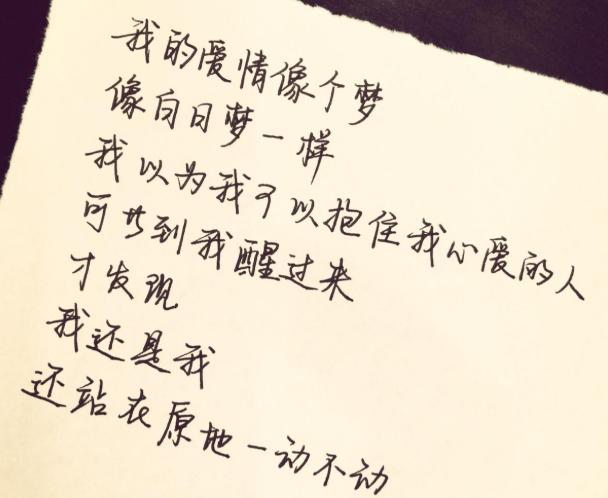 我的爱情像个梦
像白日梦一样
我以为我可以抱住我心爱的人
可当到我醒过来
才发现
我还是我
还站在原地一动不动